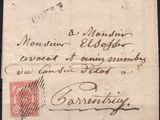 Monsieur
Monsieur Elsässer
avocat & ancien membre
du Conseil d'état à
Porrentruy